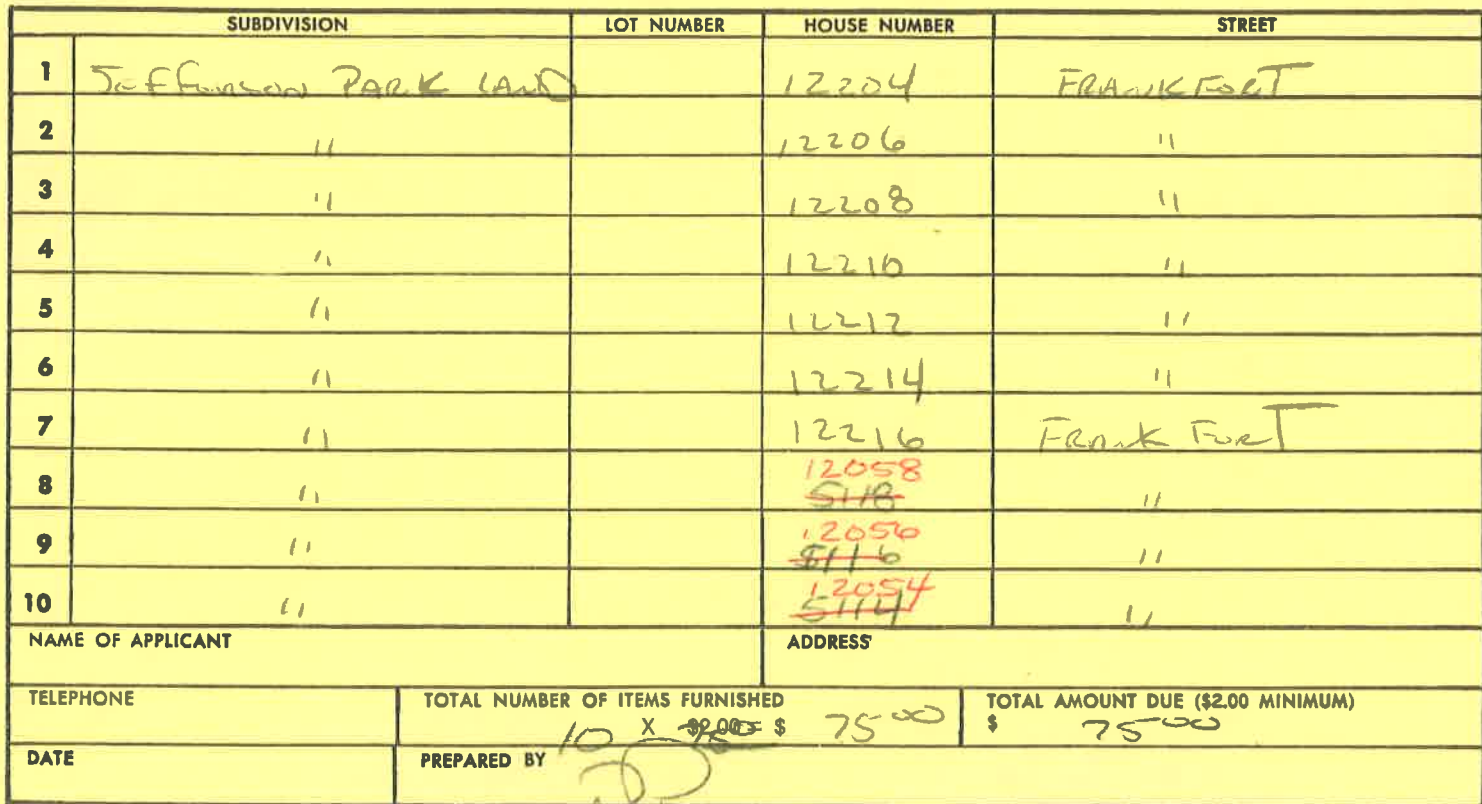 SUBDIVISION LOT NUMBER HOUSE NUMBER STREET
1 Jefferson PARK LAND 12204 FRANKFORT
2 " 12206 "
3 " 12208 "
4 " 12210 "
5 " 12212 "
6 " 12214 "
7 " 12216 FRANK FORT
8 " 12058 5118 "
9 " 12056 5116 "
10 " 12054 5114 "
NAME OF APPLICANT ADDRESS
TELEPHONE TOTAL NUMBER OF ITEMS FURNISHED TOTAL AMOUNT DUE ($2.00 MINIMUM)
10 X $2.00 = $ 75 00 $ 75 00
DATE PREPARED BY